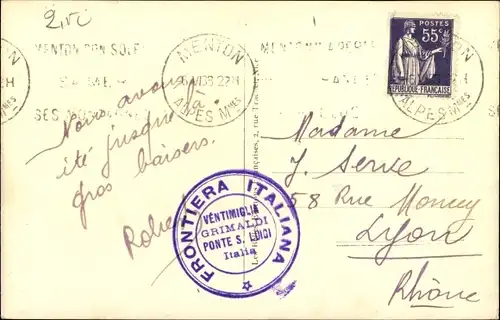 2,vi
MENTON SON SOLEIL
SA MER
SES MONTAGNES
MENTON
VI 38 22H
ALPES Mmes
MENTON
ALPES Mmes
POSTES
55c
REPUBLIQUE FRANCAISE
Nous avons
été jusque là.
gros baisers.
FRONTIERA ITALIANA
VENTIMIGLIA
GRIMALDI
PONTE S. LUIGI
Italia
Madame
J. Serve
58 Rue
Lyon
Rhône